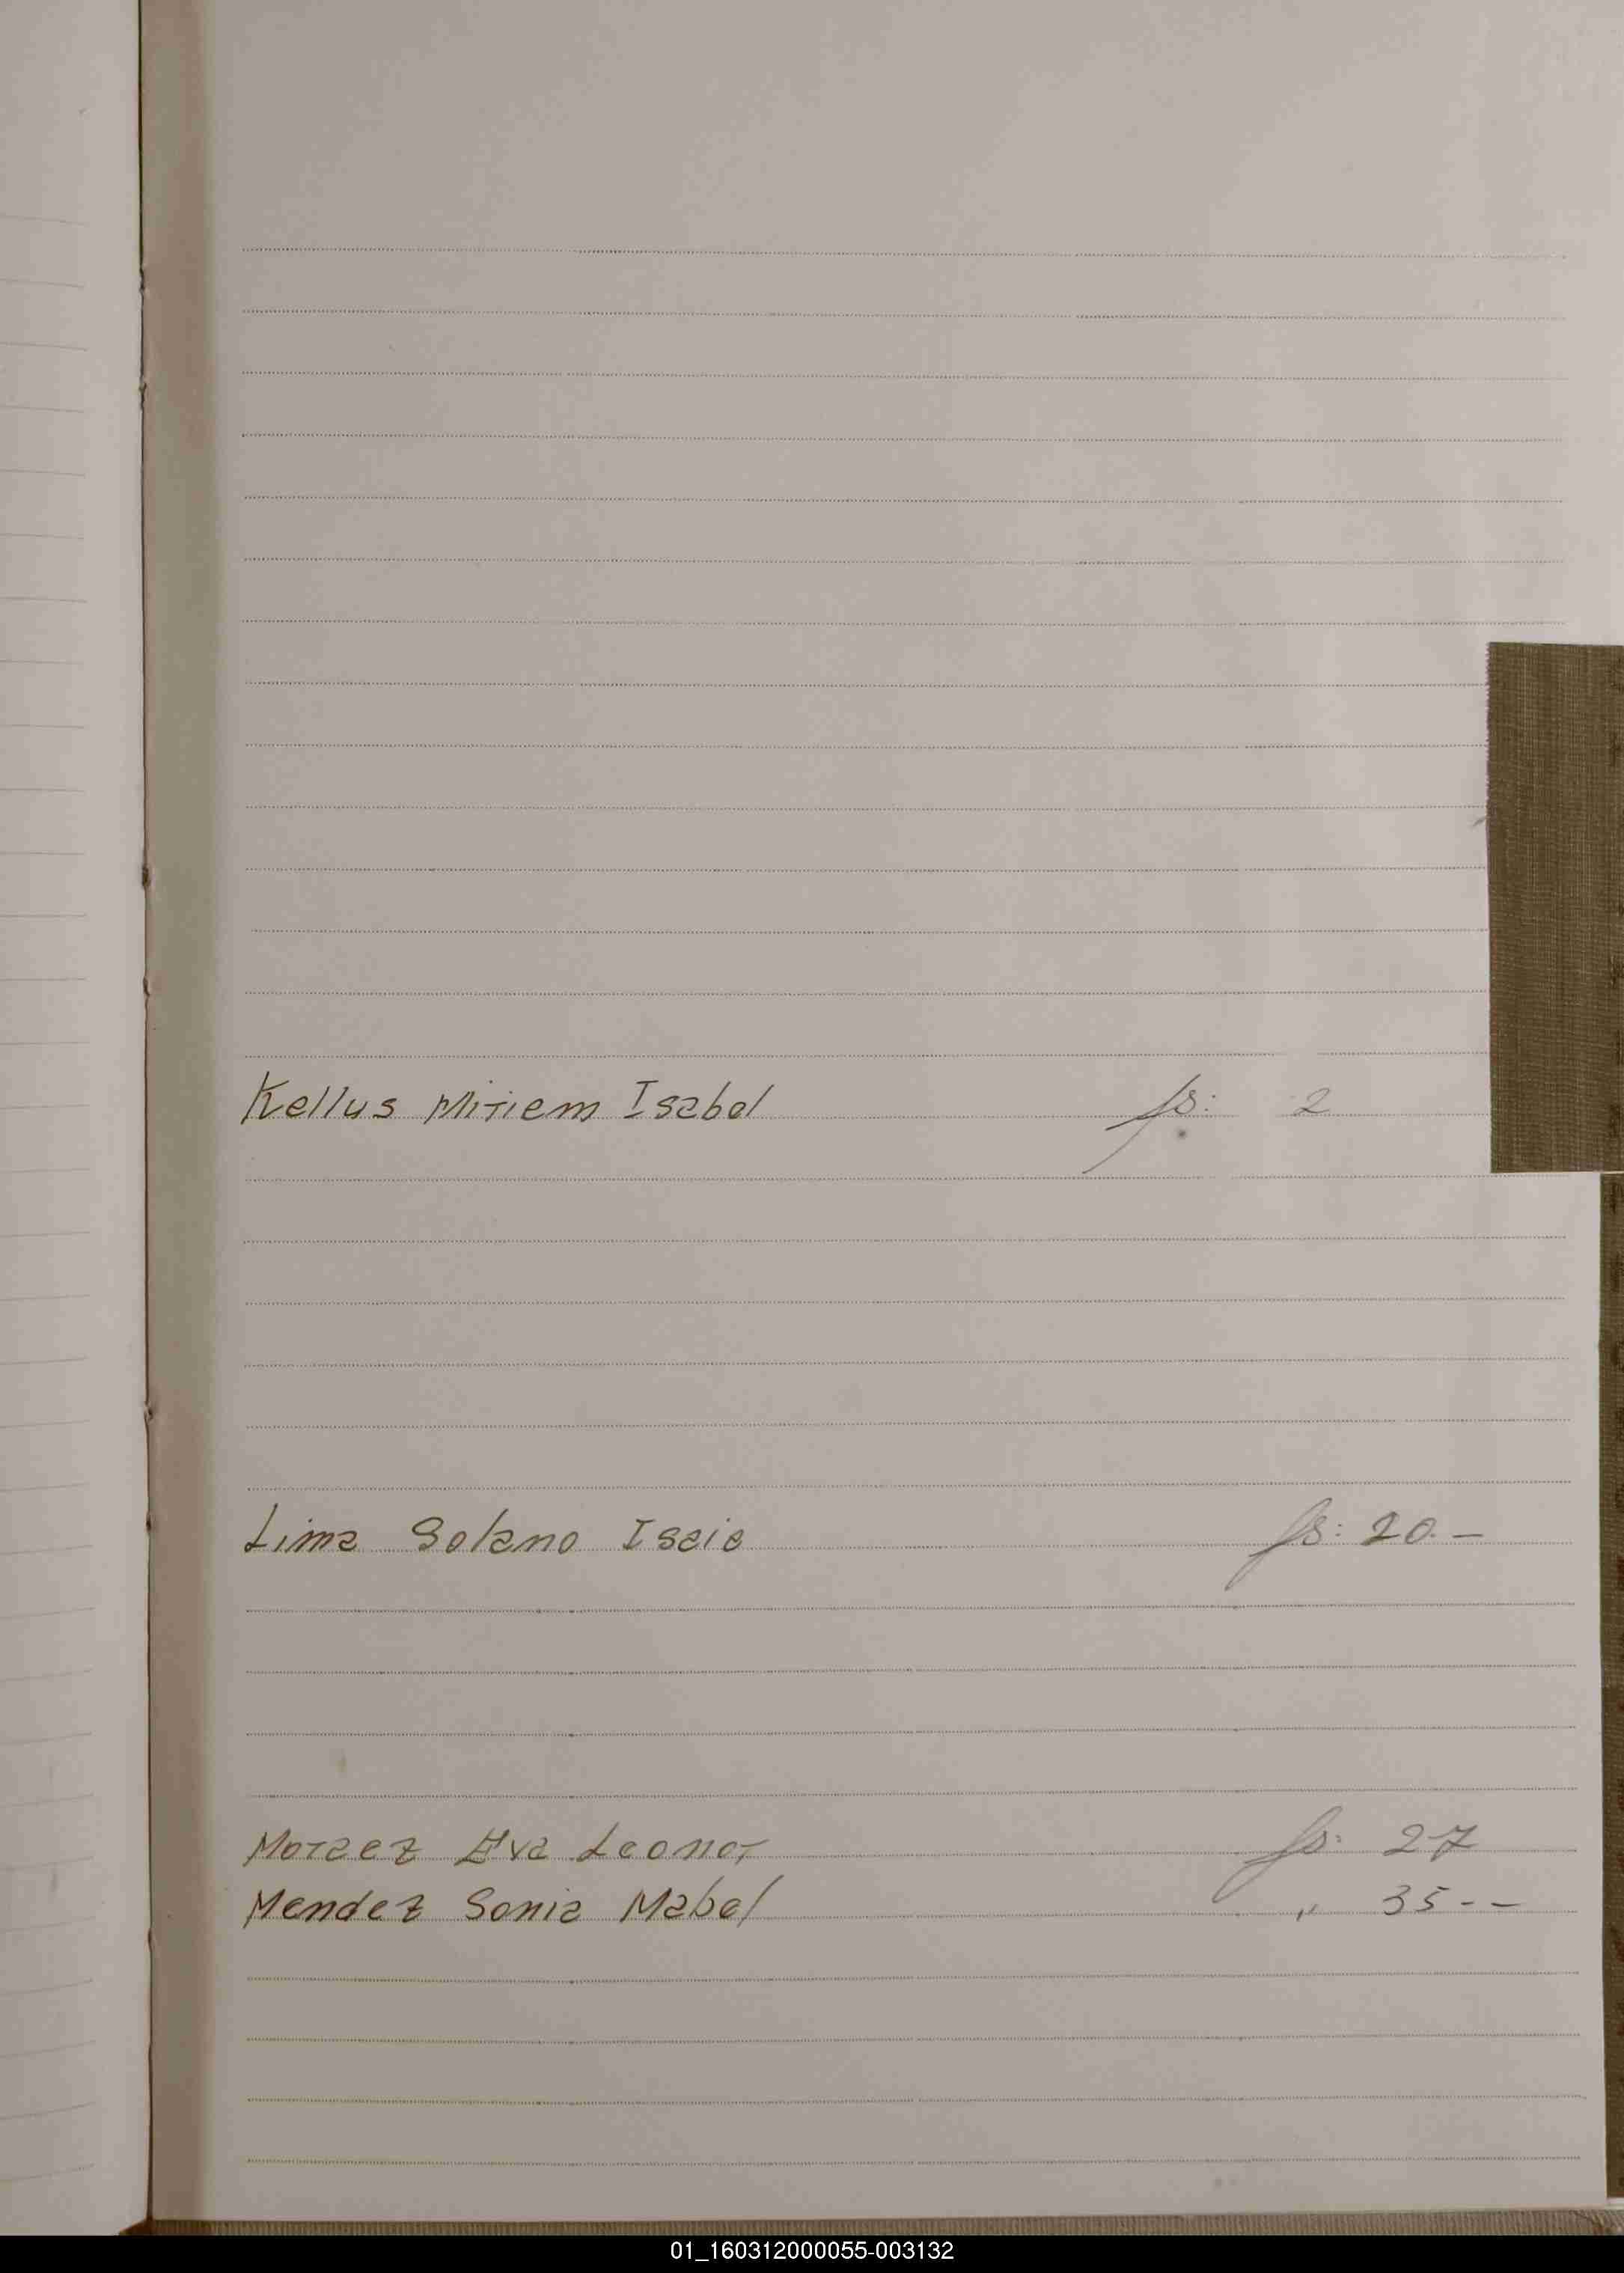 Kellus Miriem Isabel fs: 2
Lima Solano Isaie fs: 20.—
Moraez Eva Leonor fs: 27
Mendez Sonia Mabel " 35--
01_160312000055-003132